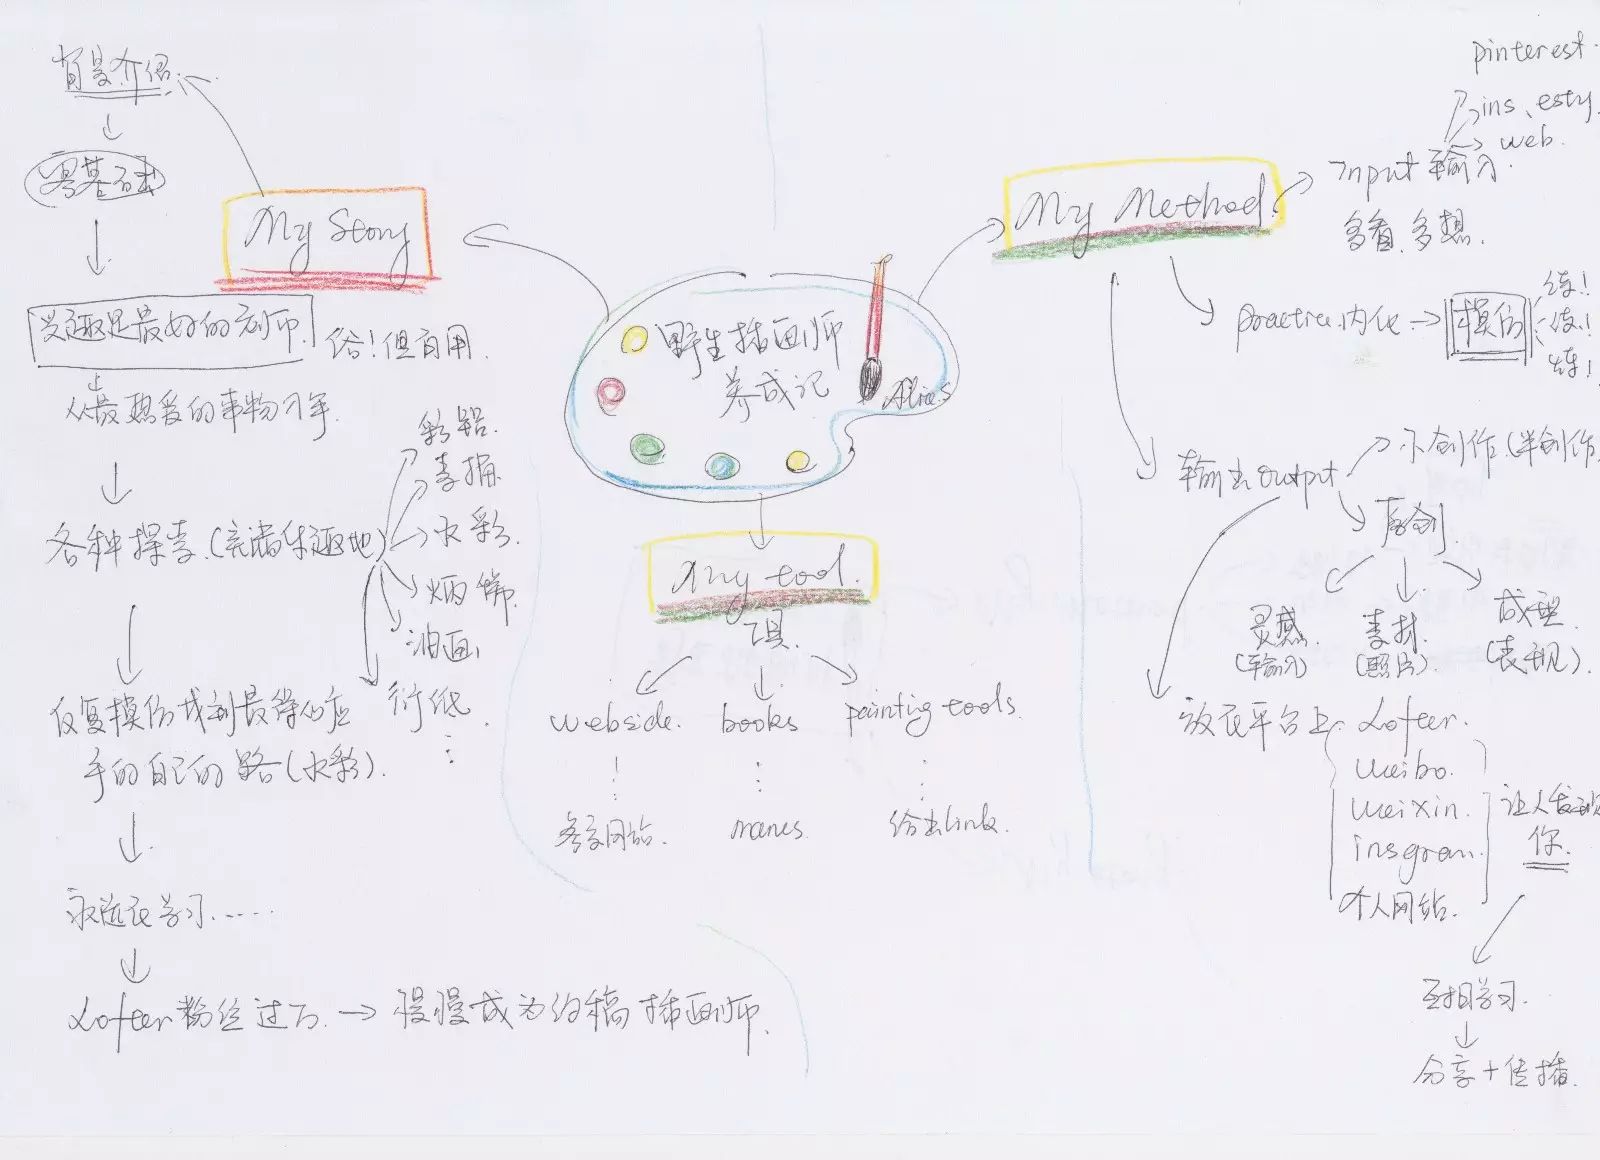 野生插画师
养成记
Alice.S
My Story
背景介绍
零基础
兴趣是最好的老师.
俗!但有用.
从最热爱的事物习车.
各种探索.
彩铅.
素描.
水彩.
油画
衍纸.
反复模仿找到最得心应
手的自己的路(水彩).
永远在学习......
Lofter粉丝过万. → 慢慢成为约稿插画师.
My tool.
工具.
webside.
books
painting tools.
各方网站.
names.
给出link.
My Method.
Input 输入.
pinterest.
ins、esty.
web.
多看.多想.
practice.内化 →
模仿
练!
练!
练!
输出output
小创作(半创作
原创
灵感.
(输入)
素材.
(照片).
成型.
(表现).
放在平台上
Lofter.
weibo.
weixin.
insgram.
个人网站.
让人发现
你.
互相学习.
分享+传播.